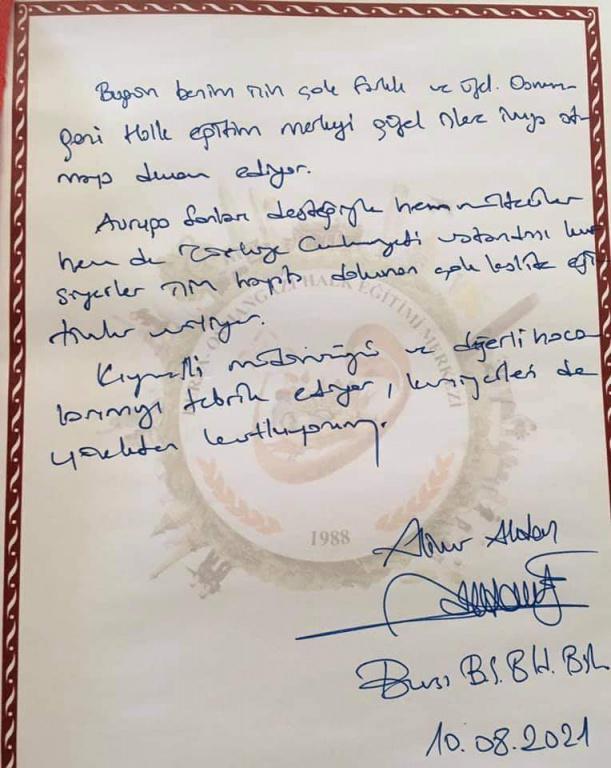 Bugün benim için çok farklı ve özel. Osman-
gazi Halk eğitim merkezi güzel işlere imza at-
maya devam ediyor.
Avrupa fonları desteğiyle hem mülteciler
hem de Türkiye Cumhuriyeti vatandaşı kur
siyerler için hayata dokunan çok kaliteli eği
timler veriliyor.
Kıymetli müdürümüzü ve değerli hoca-
larımızı tebrik ediyor, kursiyerleri de
yürekten kutluyorum.
OSMANGAZİ HALK EĞİTİMİ MERKEZİ
1988
Alinur Aktaş
Bursa B.Ş.BLD.Bşk.
10.08.2021